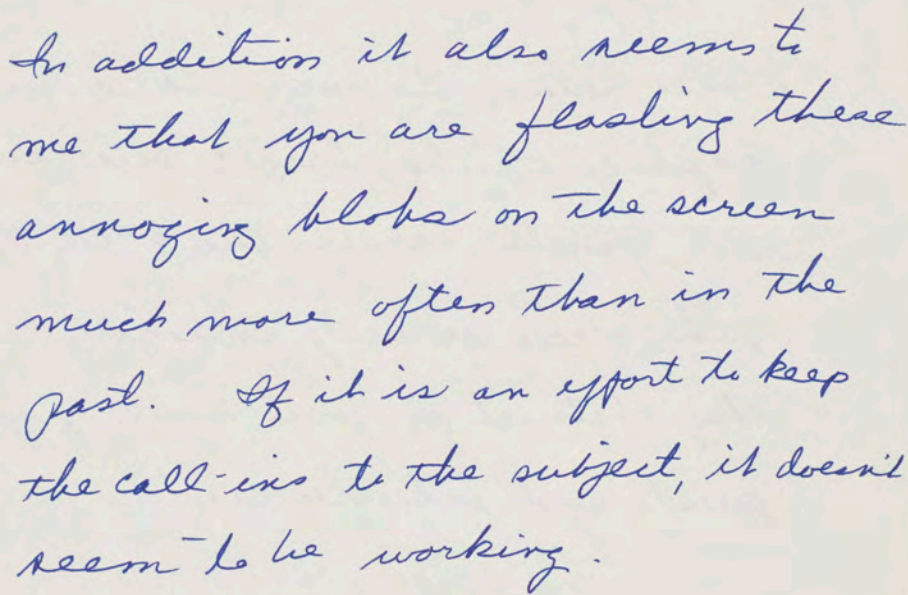 In addition it also seems to
me that you are flashing these
annoying blobs on the screen
much more often than in the
past. If it is an effort to keep
the call-ins to the subject, it doesn't
seem to be working.